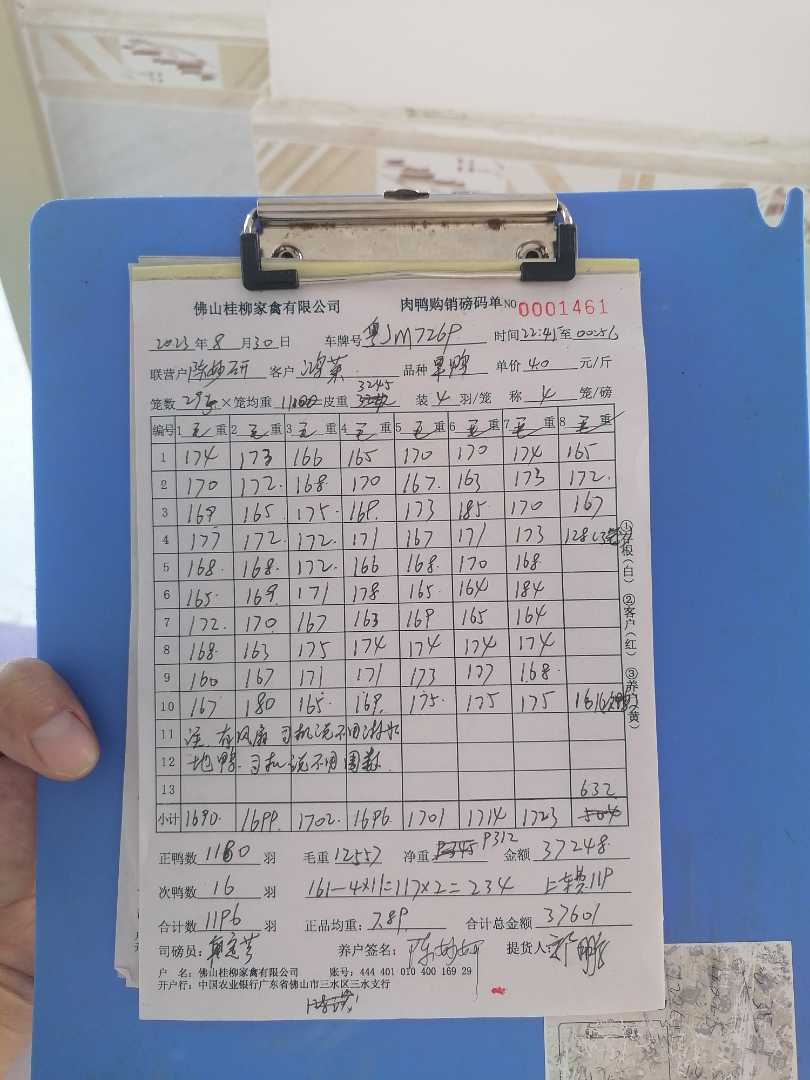 佛山桂柳家禽有限公司 肉鸭购销磅码单 NO 0001461
2023年8月30日 车牌号 粤JM7269 时间22:45至00:56
联营户 陈妙研 客户 品种 单价 4.0 元/斤
笼数 295 × 笼均重 11 皮重 3245 装 4 羽/笼 称 4 笼/磅
编号 1 毛重 2 毛重 3 毛重 4 毛重 5 毛重 6 毛重 7 毛重 8 毛重
1 174 173 166 165 170 170 174 165
2 170 172 168 170 167 163 173 172
3 169 165 175 169 173 185 170 167
4 177 172 172 171 167 171 173 128
5 168 168 172 166 168 170 168
6 165 169 171 178 165 164 184
7 172 170 167 163 169 165 164
8 168 163 175 174 174 174 174
9 160 167 171 171 173 177 168
10 167 180 165 169 175 175 175
11 注:有风扇 司机说不用淋水
12 地鸭 司机说不用围数
13 632
小计 1680 1699 1702 1696 1701 1714 1723
正鸭数 1180 羽 毛重 12557 净重 9312 金额 37248
次鸭数 16 羽 161-4×11=117×2=234 上车费119
合计数 1196 羽 正品均重: 7.89 合计总金额 37601
司磅员: 养户签名: 提货人:
户 名: 佛山桂柳家禽有限公司 账号: 444 401 010 400 169 29
开户行: 中国农业银行广东省佛山市三水区三水支行
①存根(白) ②客户(红) ③养户(黄)